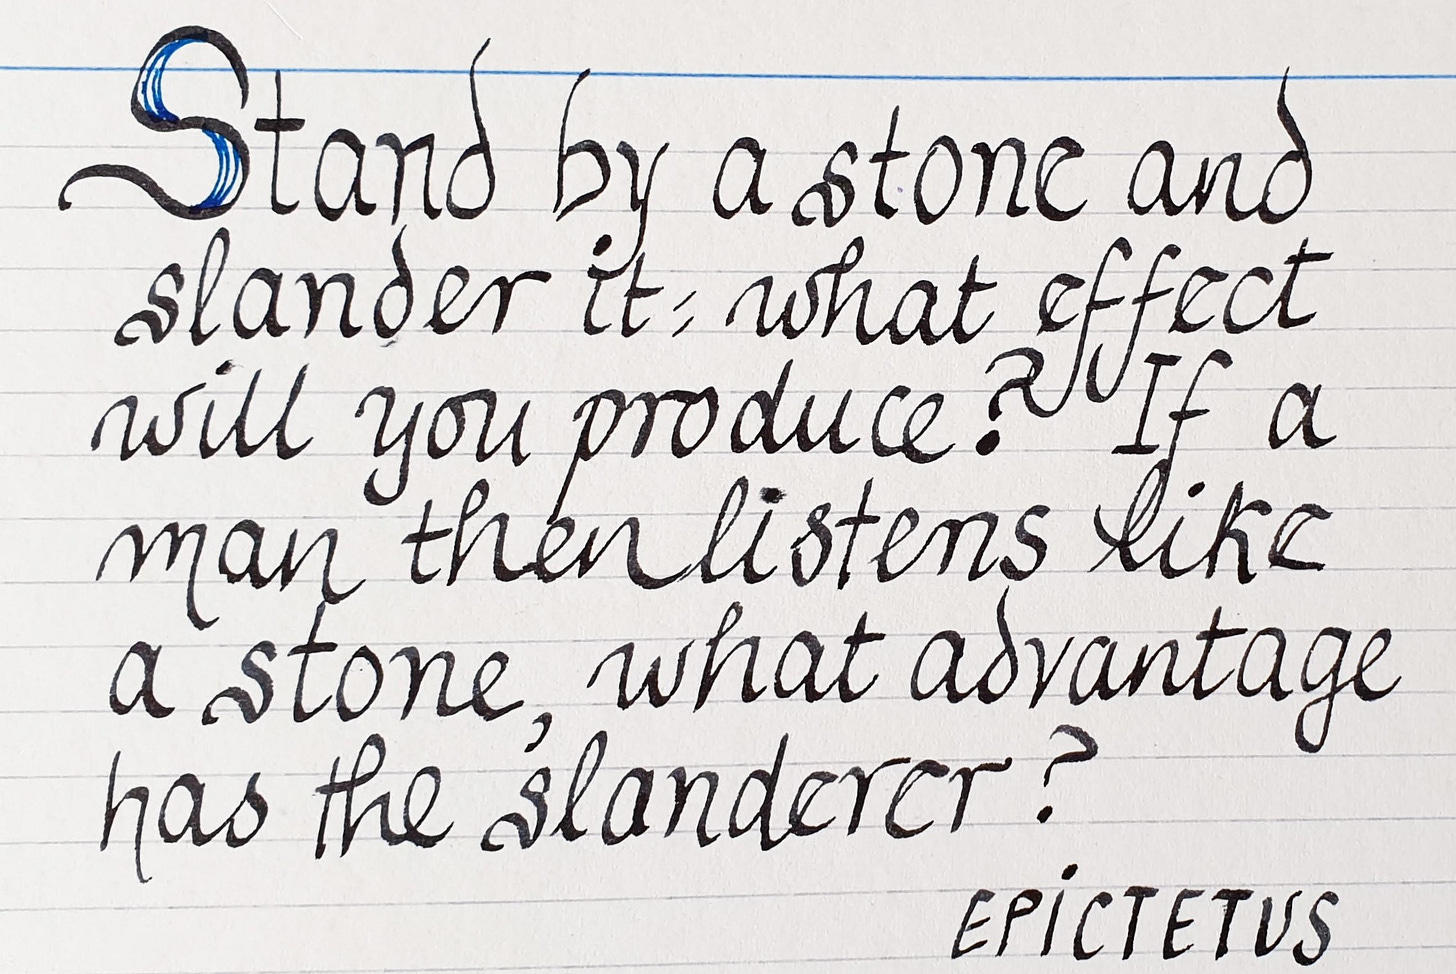 Stand by a stone and
slander it: what effect
will you produce? If a
man then listens like
a stone, what advantage
has the slanderer?
EPiCTETUS